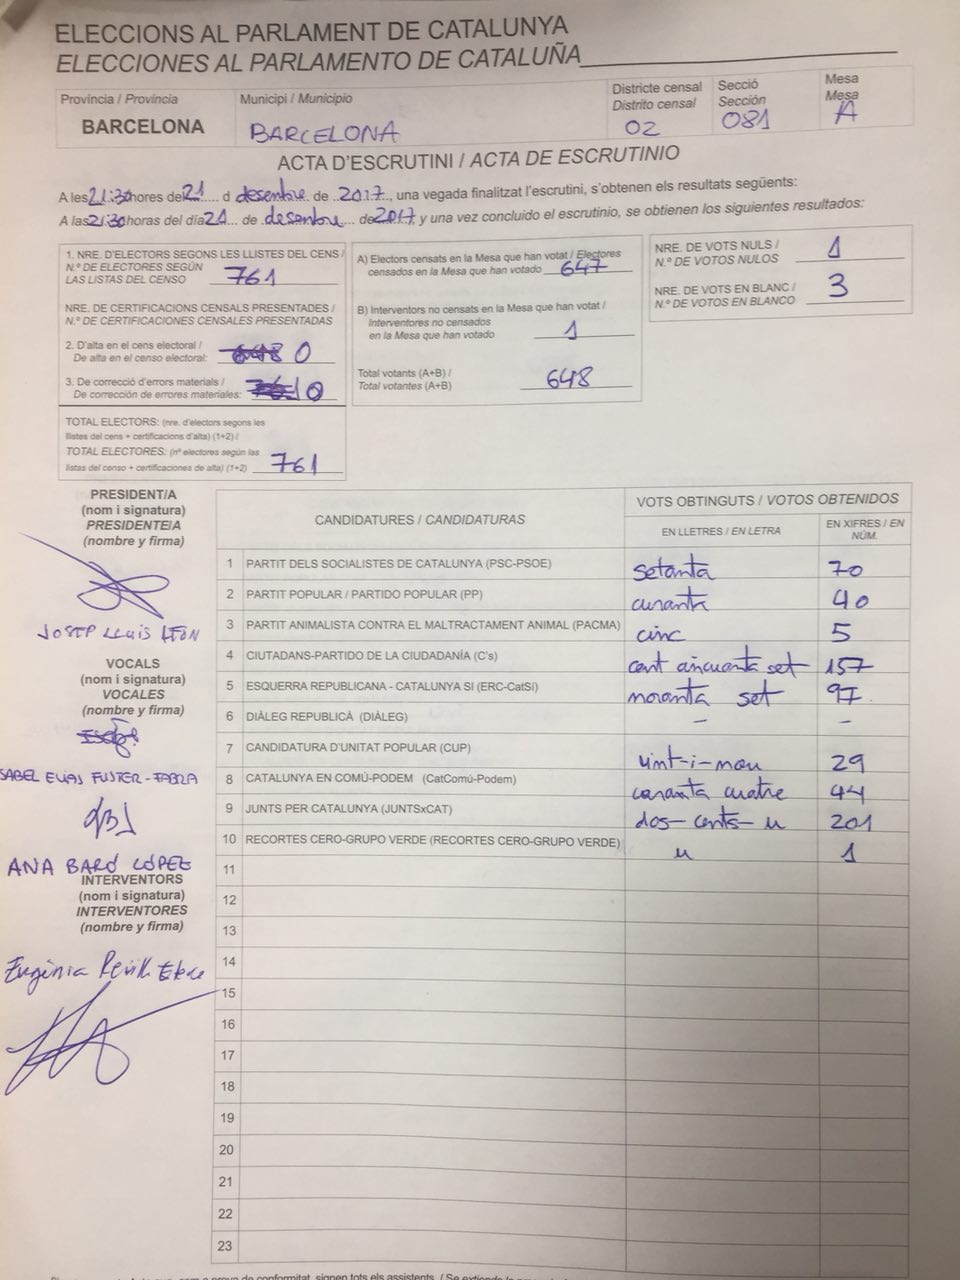 ELECCIONS AL PARLAMENT DE CATALUNYA
ELECCIONES AL PARLAMENTO DE CATALUÑA
Província / Provincia
BARCELONA
Municipi / Municipio
BARCELONA
Districte censal
Distrito censal
02
Secció
Sección
081
Mesa
Mesa
A
ACTA D'ESCRUTINI / ACTA DE ESCRUTINIO
A les 21:30 hores del 21 d desembre de 2017, una vegada finalitzat l'escrutini, s'obtenen els resultats següents:
A las 21:30 horas del día 21 de desembre de 2017 y una vez concluido el escrutinio, se obtienen los siguientes resultados:
1. NRE. D'ELECTORS SEGONS LES LLISTES DEL CENS /
N.º DE ELECTORES SEGÚN
LAS LISTAS DEL CENSO 761
NRE. DE CERTIFICACIONS CENSALS PRESENTADES /
N.º DE CERTIFICACIONES CENSALES PRESENTADAS
2. D'alta en el cens electoral /
De alta en el censo electoral: 0
3. De correcció d'errors materials /
De corrección de errores materiales: 0
TOTAL ELECTORS: (nre. d'electors segons les
llistes del cens + certificacions d'alta) (1+2) /
TOTAL ELECTORES: (nº electores según las
listas del censo + certificaciones de alta) (1+2) 761
A) Electors censats en la Mesa que han votat / Electores
censados en la Mesa que han votado 647
B) Interventors no censats en la Mesa que han votat /
Interventores no censados
en la Mesa que han votado 1
Total votants (A+B) /
Total votantes (A+B) 648
NRE. DE VOTS NULS /
N.º DE VOTOS NULOS 1
NRE. DE VOTS EN BLANC /
N.º DE VOTOS EN BLANCO 3
PRESIDENT/A
(nom i signatura)
PRESIDENTE/A
(nombre y firma)
JOSEP LLUIS LEÓN
VOCALS
(nom i signatura)
VOCALES
(nombre y firma)
ISABEL ELIAS FUSTER-FABRA
ANA BARÓ LÓPEZ
INTERVENTORS
(nom i signatura)
INTERVENTORES
(nombre y firma)
Eugènia
CANDIDATURES / CANDIDATURAS
VOTS OBTINGUTS / VOTOS OBTENIDOS
EN LLETRES / EN LETRA
EN XIFRES / EN
NÚM.
1 PARTIT DELS SOCIALISTES DE CATALUNYA (PSC-PSOE) setanta 70
2 PARTIT POPULAR / PARTIDO POPULAR (PP) curanta 40
3 PARTIT ANIMALISTA CONTRA EL MALTRACTAMENT ANIMAL (PACMA) cinc 5
4 CIUTADANS-PARTIDO DE LA CIUDADANÍA (C's) cent cincuanta set 157
5 ESQUERRA REPUBLICANA - CATALUNYA SI (ERC-CatSí) noranta set 97
6 DIÀLEG REPUBLICÀ (DIÀLEG) - -
7 CANDIDATURA D'UNITAT POPULAR (CUP) vint-i-nou 29
8 CATALUNYA EN COMÚ-PODEM (CatComú-Podem) coranta cuatre 44
9 JUNTS PER CATALUNYA (JUNTSxCAT) dos-cents-u 201
10 RECORTES CERO-GRUPO VERDE (RECORTES CERO-GRUPO VERDE) u 1
11
12
13
14
15
16
17
18
19
20
21
22
23